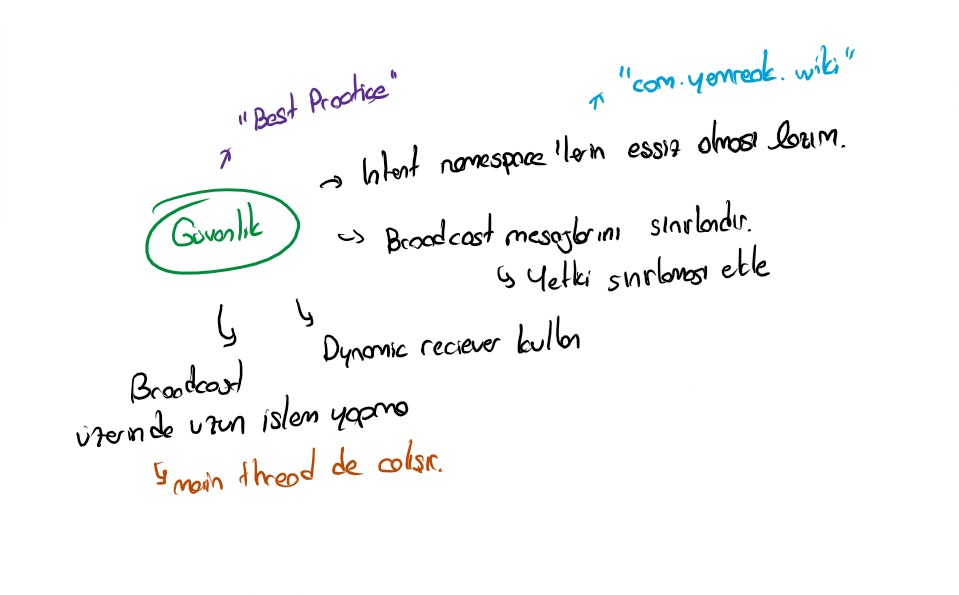 "com.yemreak.wiki"
"Best Practice"
Intent namespace'lerin eşsiz olması lazım.
Güvenlik
Broadcast mesajlarını sınırlandır.
Yetki sınırlaması ekle
Dynamic reciever kullan
Broadcast
üzerinde uzun işlem yapma
main thread de çalışır.